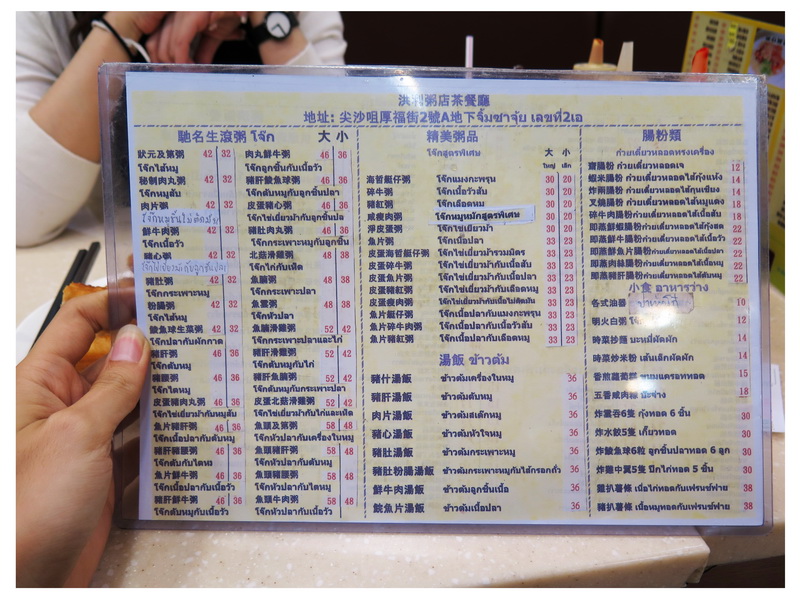 洪利粥店茶餐廳
地址: 尖沙咀厚福街2號A地下จิ้มซาจุ่ย เลขที่2เอ
馳名生滾粥 โจ๊ก 大 小
狀元及第粥 42 32
โจ๊กไส้หมู
秘制肉丸粥 42 32
โจ๊กหมูสับ
肉片粥 42 32
鮮牛肉粥 42 32
โจ๊กเนื้อวัว
豬心粥
豬肚粥 42 32
โจ๊กกระเพาะหมู
粉腸粥 42 32
โจ๊กไส้หมู
鯪魚球生菜粥 42 32
โจ๊กปลากับผักกาด
豬肝粥 42 32
โจ๊กตับหมู
豬腰粥 42 32
皮蛋豬肉丸粥 46 36
โจ๊กไข่เยี่ยวม้ากับหมูสับ
魚片豬肝粥 46 36
โจ๊กเนื้อปลากับตับหมู
豬肝豬腰粥 46 36
โจ๊กตับกับไตหมู
魚片鮮牛粥 46 36
โจ๊กเนื้อปลากับเนื้อวัว
豬肝鮮牛粥 46 36
โจ๊กตับหมูกับเนื้อวัว
肉丸鮮牛粥 46 36
โจ๊กลูกชิ้นกับเนื้อวัว
豬肝鯪魚球粥 46 36
โจ๊กตับหมูกับลูกชิ้นปลา
皮蛋豬心粥 46 36
皮蛋豬肉丸粥 46 36
โจ๊กกระเพาะหมูกับลูกชิ้น
北菇滑雞粥 48 38
โจ๊กไก่กับเห็ด
魚腩粥 48 38
โจ๊กกระเพาะปลา
魚雲粥 48 38
โจ๊กหัวปลา
魚腩滑雞粥 52 42
โจ๊กกระเพาะปลาและไก่
豬肝滑雞粥 52 42
โจ๊กตับหมูกับไก่
豬肝魚腩粥 52 42
โจ๊กตับหมูกับกระเพาะปลา
皮蛋北菇滑雞粥 52 42
โจ๊กไข่เยี่ยวม้ากับไก่และเห็ด
魚頭及第粥 58 48
โจ๊กหัวปลากับเครื่องในหมู
魚頭豬肝粥 58 48
โจ๊กหัวปลากับตับหมู
魚頭豬腰粥 58 48
โจ๊กหัวปลากับไตหมู
魚頭牛肉粥 58 48
โจ๊กหัวปลากับเนื้อวัว
精美粥品
โจ๊กสูตรพิเศษ
大 小
ใหญ่ เล็ก
海哲艇仔粥 โจ๊กแมงกะพรุน 30 20
碎牛粥 โจ๊กเนื้อวัวสับ 30 20
豬紅粥 โจ๊กเลือดหมู 30 20
咸瘦肉粥 โจ๊กหมูหมักสูตรพิเศษ 30 20
淨皮蛋粥 โจ๊กไข่เยี่ยวม้า 30 20
魚片粥 โจ๊กเนื้อปลา 33 23
皮蛋海哲艇仔粥 โจ๊กไข่เยี่ยวม้ารวมมิตร 33 23
皮蛋碎牛粥 โจ๊กไข่เยี่ยวม้ากับเนื้อสับ 33 23
皮蛋魚片粥 โจ๊กไข่เยี่ยวม้ากับเนื้อปลา 33 23
皮蛋豬紅粥 โจ๊กไข่เยี่ยวม้ากับเลือดหมู 33 23
皮蛋瘦肉粥 โจ๊กไข่เยี่ยวม้ากับเนื้อไม่ติดมัน 33 23
魚片艇仔粥 โจ๊กเนื้อปลากับแมงกะพรุน 33 23
魚片碎牛肉粥 โจ๊กเนื้อปลากับเนื้อวัวสับ 33 23
魚片豬紅粥 โจ๊กเนื้อปลากับเลือดหมู 33 23
湯飯 ข้าวต้ม
豬什湯飯 ข้าวต้มเครื่องในหมู 36
豬肝湯飯 ข้าวต้มตับหมู 36
肉片湯飯 ข้าวต้มสเต๊กหมู 36
豬心湯飯 ข้าวต้มหัวใจหมู 36
豬肚湯飯 ข้าวต้มกระเพาะหมู 36
豬肚粉腸湯飯 ข้าวต้มกระเพาะหมูกับไส้กรอกถั่ว 36
鮮牛肉湯飯 ข้าวต้มลูกชิ้นเนื้อ 36
鯇魚片湯飯 ข้าวต้มเนื้อปลา 36
腸粉類
ก๋วยเตี๋ยวหลอดทรงเครื่อง
齋腸粉 ก๋วยเตี๋ยวหลอดเจ 12
蝦米腸粉 ก๋วยเตี๋ยวหลอดไส้กุ้งแห้ง 14
炸兩腸粉 ก๋วยเตี๋ยวหลอดไส้กุนเชียง 14
叉燒腸粉 ก๋วยเตี๋ยวหลอดไส้หมูแดง 18
碎牛肉腸粉 ก๋วยเตี๋ยวหลอดไส้เนื้อสับ 18
即蒸鮮蝦腸粉 ก๋วยเตี๋ยวหลอดไส้กุ้งสด 22
即蒸鮮牛腸粉 ก๋วยเตี๋ยวหลอดไส้เนื้อวัว 22
即蒸鮮魚片腸粉 ก๋วยเตี๋ยวหลอดไส้เนื้อปลา 22
即蒸肉絲腸粉 ก๋วยเตี๋ยวหลอดไส้เนื้อหมู 22
即蒸豬肝腸粉 ก๋วยเตี๋ยวหลอดไส้ตับหมู 22
小食 อาหารว่าง
各式油器 10
明火白粥 โจ๊ก 12
時菜炒麵 บะหมี่ผัดผัก 14
時菜炒米粉 เส้นเล็กผัดผัก 14
香煎蘿蔔糕 ขนมแครอททอด 15
五香咸肉粽 บ๊ะจ่าง 18
炸雲吞6隻 กุ้งทอด 6 ชิ้น 30
炸水餃5隻 เกี๊ยวทอด 30
炸鯪魚球6粒 ลูกชิ้นปลาทอด 6 ลูก 30
炸雞中翼5隻 ปีกไก่ทอด 5 ชิ้น 30
雞扒薯條 เนื้อไก่ทอดกับเฟรนช์ฟาย 38
豬扒薯條 เนื้อหมูทอดกับเฟรนช์ฟาย 38